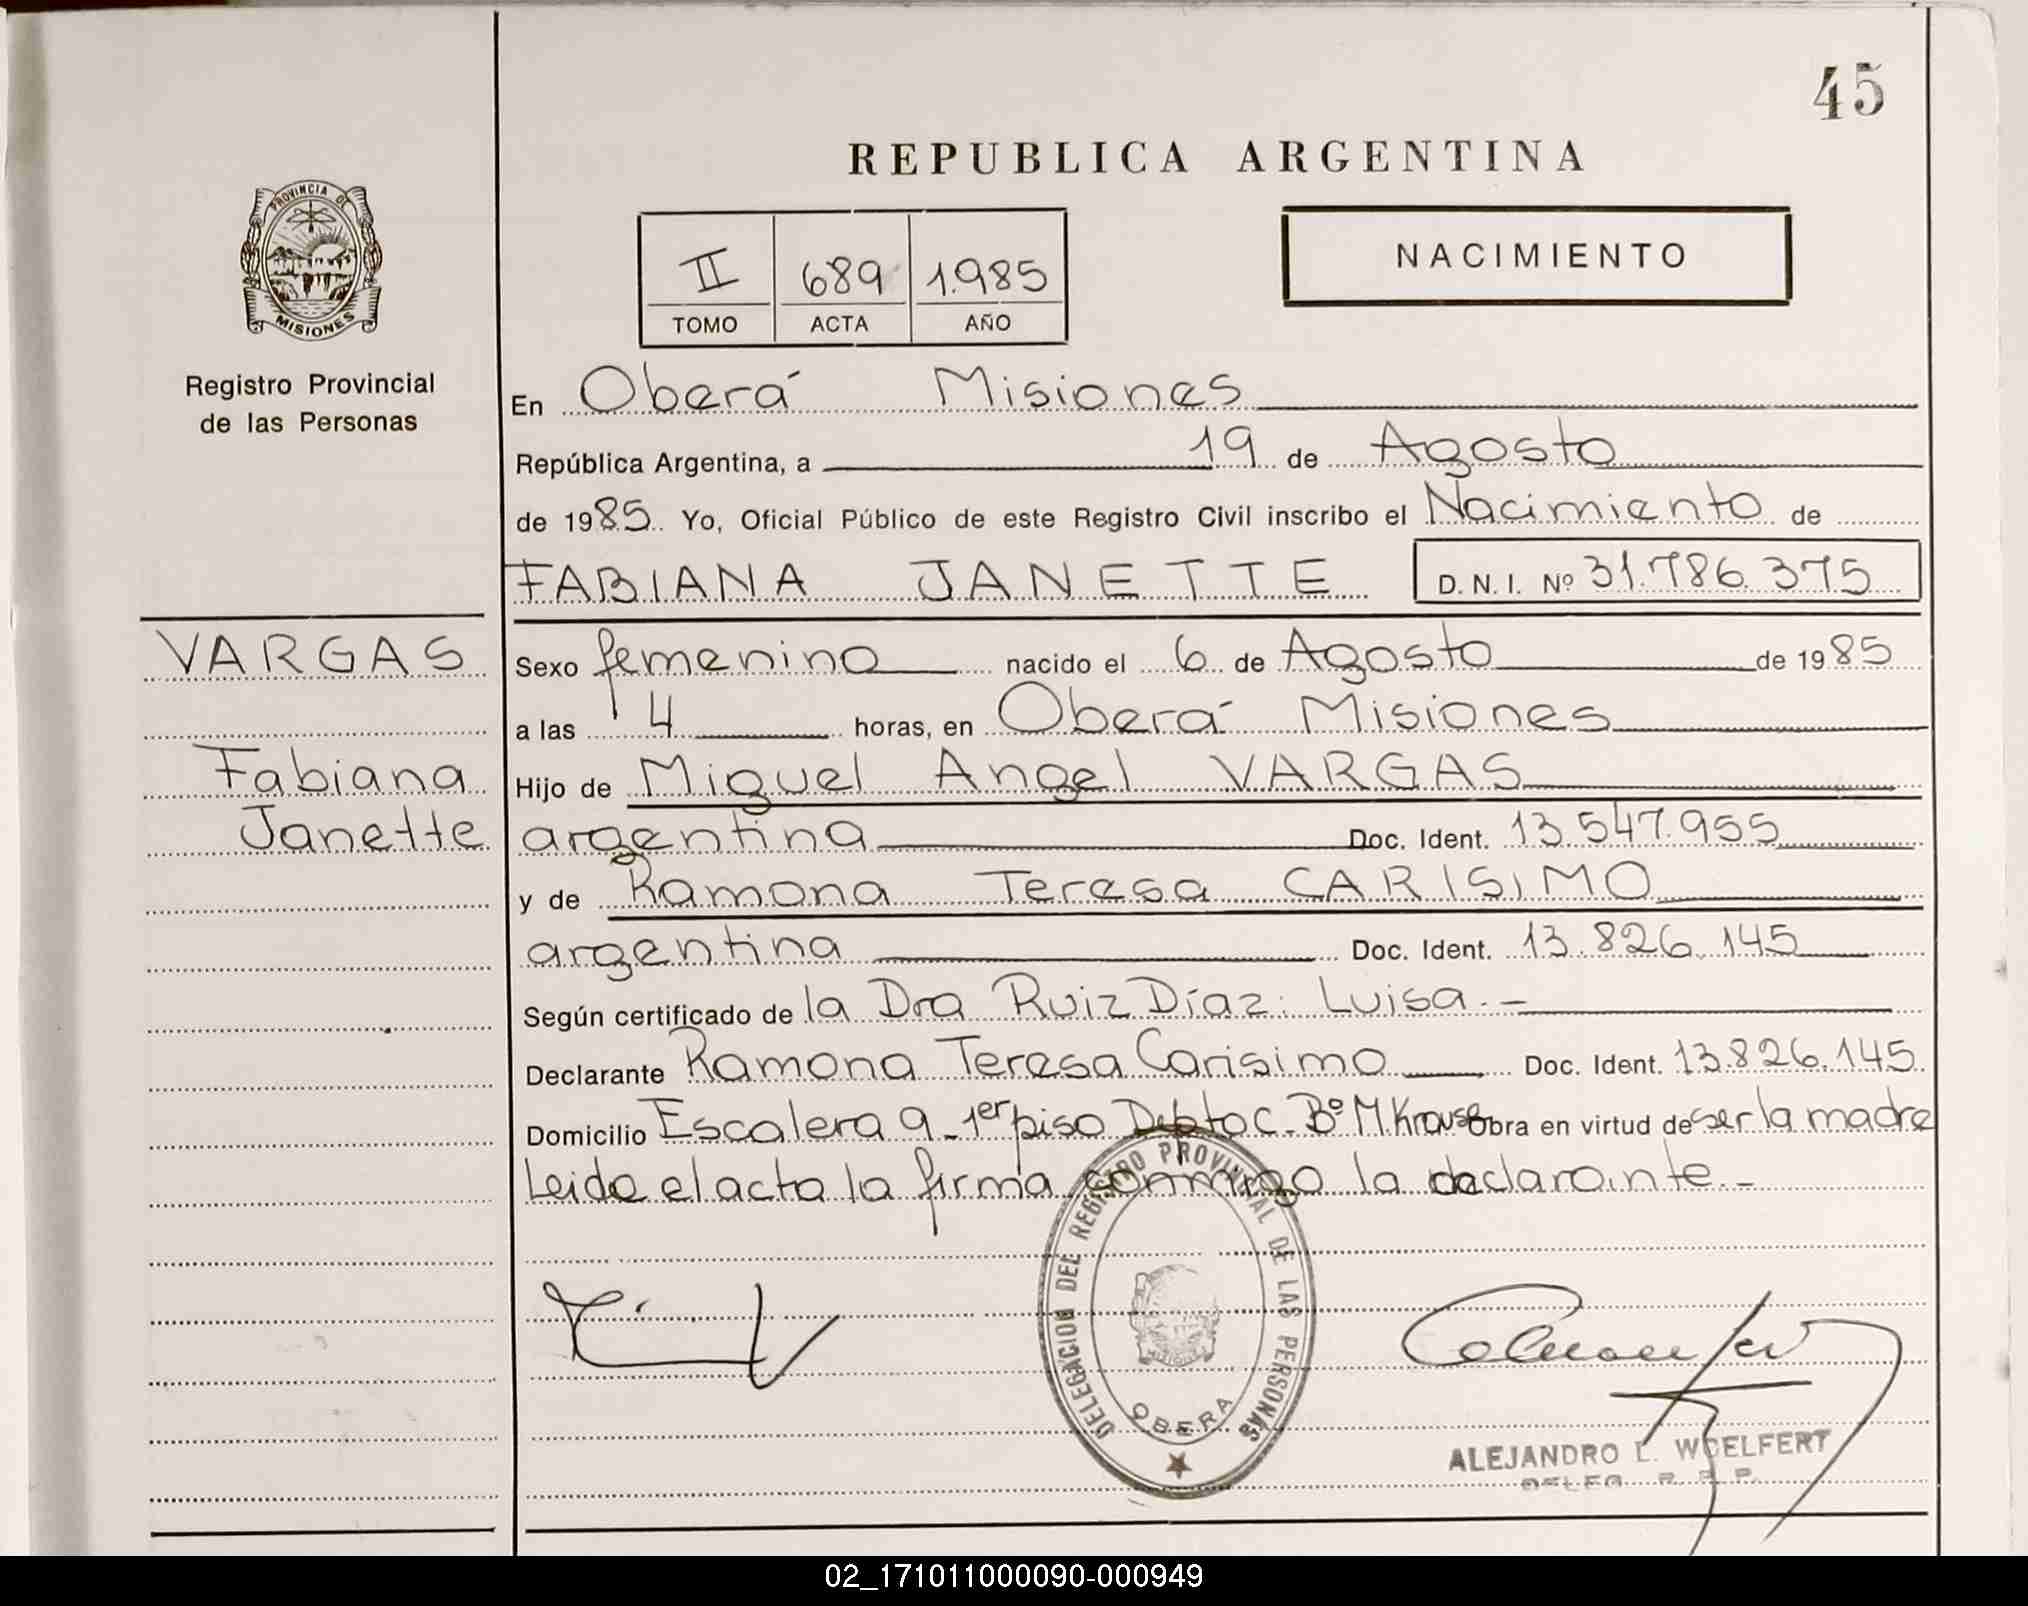 45
REPUBLICA ARGENTINA
PROVINCIA DE
MISIONES
Registro Provincial
de las Personas
II 689 1.985
TOMO ACTA AÑO
NACIMIENTO
En Oberá Misiones
República Argentina, a 19 de Agosto
de 1985 Yo, Oficial Público de este Registro Civil inscribo el Nacimiento de
FABIANA JANETTE D. N. I. Nº 31.786.375
VARGAS
Fabiana
Janette
Sexo femenino nacido el 6 de Agosto de 1985
a las 4 horas, en Oberá Misiones
Hijo de Miguel Angel VARGAS
argentina Doc. Ident. 13.547.955
y de Ramona Teresa CARISIMO
argentina Doc. Ident. 13.826.145
Según certificado de la Dra Ruiz Díaz. Luisa.-
Declarante Ramona Teresa Carisimo Doc. Ident. 13.826.145
Domicilio Escalera 9-1er piso Depto C-Bº M. Krause Obra en virtud de ser la madre
Leida el acta la firma conmigo la declarante.-
DELEGACION DEL REGISTRO PROVINCIAL DE LAS PERSONAS
OBERA
ALEJANDRO L. WOELFERT
DELEG. R. P. P.
02_171011000090-000949